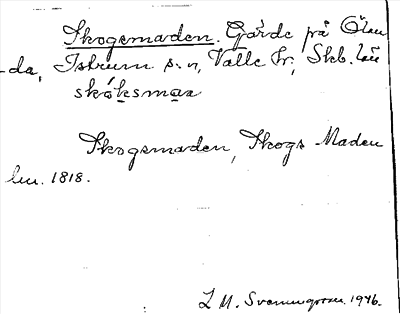 Skogsmaden. Gärde på Ölan
-da, Istrum s:n, Valle hr, Skb. län
skóksmaa
Skogsmaden, Skogs Maden
lm. 1818.
L M. Svenungsson. 1946.